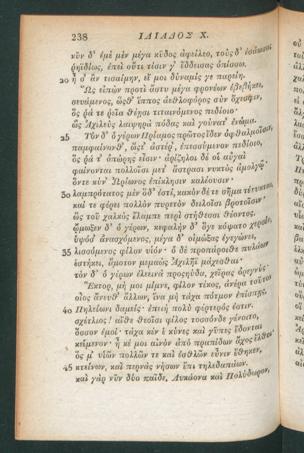 238 ΙΛΙΑΔΟΣ Χ.
νῦν δ' ἐμὲ μὲν μέγα κῦδος ἀφείλεο, τοὺς δ' ἐσάωσας
ῥηϊδίως, ἐπεὶ οὔτι τίσιν γ' ἔδδεισας ὀπίσσω.
20 ἦ σ' ἂν τισαίμην, εἴ μοι δύναμίς γε παρείη.
Ὣς εἰπὼν προτὶ ἄστυ μέγα φρονέων ἐβεβήκει,
σευάμενος, ὥσθ' ἵππος ἀεθλοφόρος σὺν ὄχεσφιν,
ὅς ῥά τε ῥεῖα θέῃσι τιταινόμενος πεδίοιο·
ὣς Ἀχιλεὺς λαιψηρὰ πόδας καὶ γούνατ' ἐνώμα.
25 Τὸν δ' ὁ γέρων Πρίαμος πρῶτος ἴδεν ὀφθαλμοῖσιν,
παμφαίνονθ', ὥςτ' ἀστέρ', ἐπεσσύμενον πεδίοιο,
ὅς ῥά τ' ὀπώρης εἶσιν· ἀρίζηλοι δέ οἱ αὐγαὶ
φαίνονται πολλοῖσι μετ' ἄστρασι νυκτὸς ἀμολγῷ·
ὅντε κύν' Ὠρίωνος ἐπίκλησιν καλέουσιν·
30 λαμπρότατος μὲν ὅδ' ἐστί, κακὸν δέ τε σῆμα τέτυκται,
καί τε φέρει πολλὸν πυρετὸν δειλοῖσι βροτοῖσιν·
ὣς τοῦ χαλκὸς ἔλαμπε περὶ στήθεσσι θέοντος.
ᾤμωξεν δ' ὁ γέρων, κεφαλὴν δ' ὅγε κόψατο χερσὶν,
ὑψόσ' ἀνασχόμενος, μέγα δ' οἰμώξας ἐγεγώνει,
35 λισσόμενος φίλον υἱόν· ὁ δὲ προπάροιθε πυλάων
ἑστήκει, ἄμοτον μεμαὼς Ἀχιλῆϊ μάχεσθαι·
τὸν δ' ὁ γέρων ἐλεεινὰ προσηύδα, χεῖρας ὀρεγνύς·
Ἕκτορ, μή μοι μίμνε, φίλον τέκος, ἀνέρα τοῦτον
οἶος ἄνευθ' ἄλλων, ἵνα μὴ τάχα πότμον ἐπίσπῃς,
40 Πηλείωνι δαμείς· ἐπειὴ πολὺ φέρτερός ἐστιν.
σχέτλιος! αἴθε θεοῖσι φίλος τοσσόνδε γένοιτο,
ὅσσον ἐμοί· τάχα κέν ἑ κύνες καὶ γῦπες ἔδονται
κείμενον· ἦ κέ μοι αἰνὸν ἀπὸ πραπίδων ἄχος ἔλθοι·
ὅς μ' υἱῶν πολλῶν τε καὶ ἐσθλῶν εὖνιν ἔθηκεν,
45 κτείνων, καὶ περνὰς νήσων ἔπι τηλεδαπάων.
καὶ γὰρ νῦν δύο παῖδε, Λυκάονα καὶ Πολύδωρον,